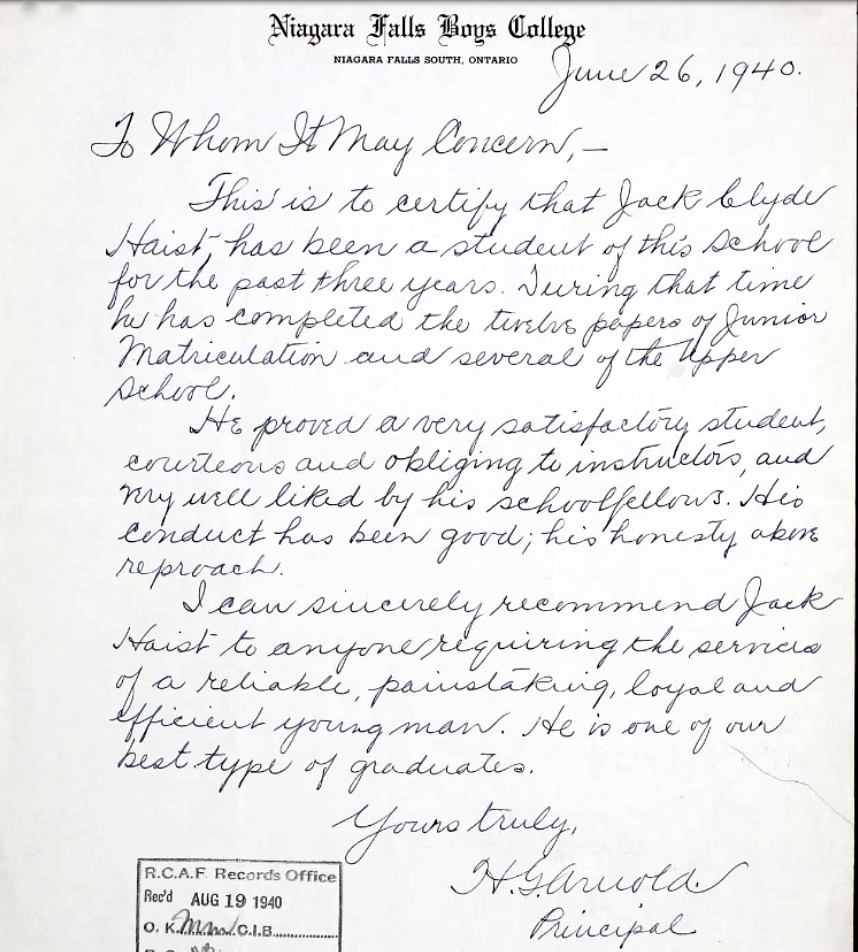 Niagara Falls Boys College
NIAGARA FALLS SOUTH, ONTARIO
June 26, 1940.
To Whom It May Concern,—
This is to certify that Jack Clyde
Haist, has been a student of this School
for the past three years. During that time
he has completed the twelve papers of Junior
Matriculation and several of the Upper
School.
He proved a very satisfactory student,
courteous and obliging to instructors, and
very well liked by his schoolfellows. His
conduct has been good; his honesty above
reproach.
I can sincerely recommend Jack
Haist to anyone requiring the services
of a reliable, painstaking, loyal and
efficient young man. He is one of our
best type of graduates.
Yours truly,
H.G. Arnold
Principal
R.C.A.F. Records Office
Rec'd AUG 19 1940
O. K. C.I.B.